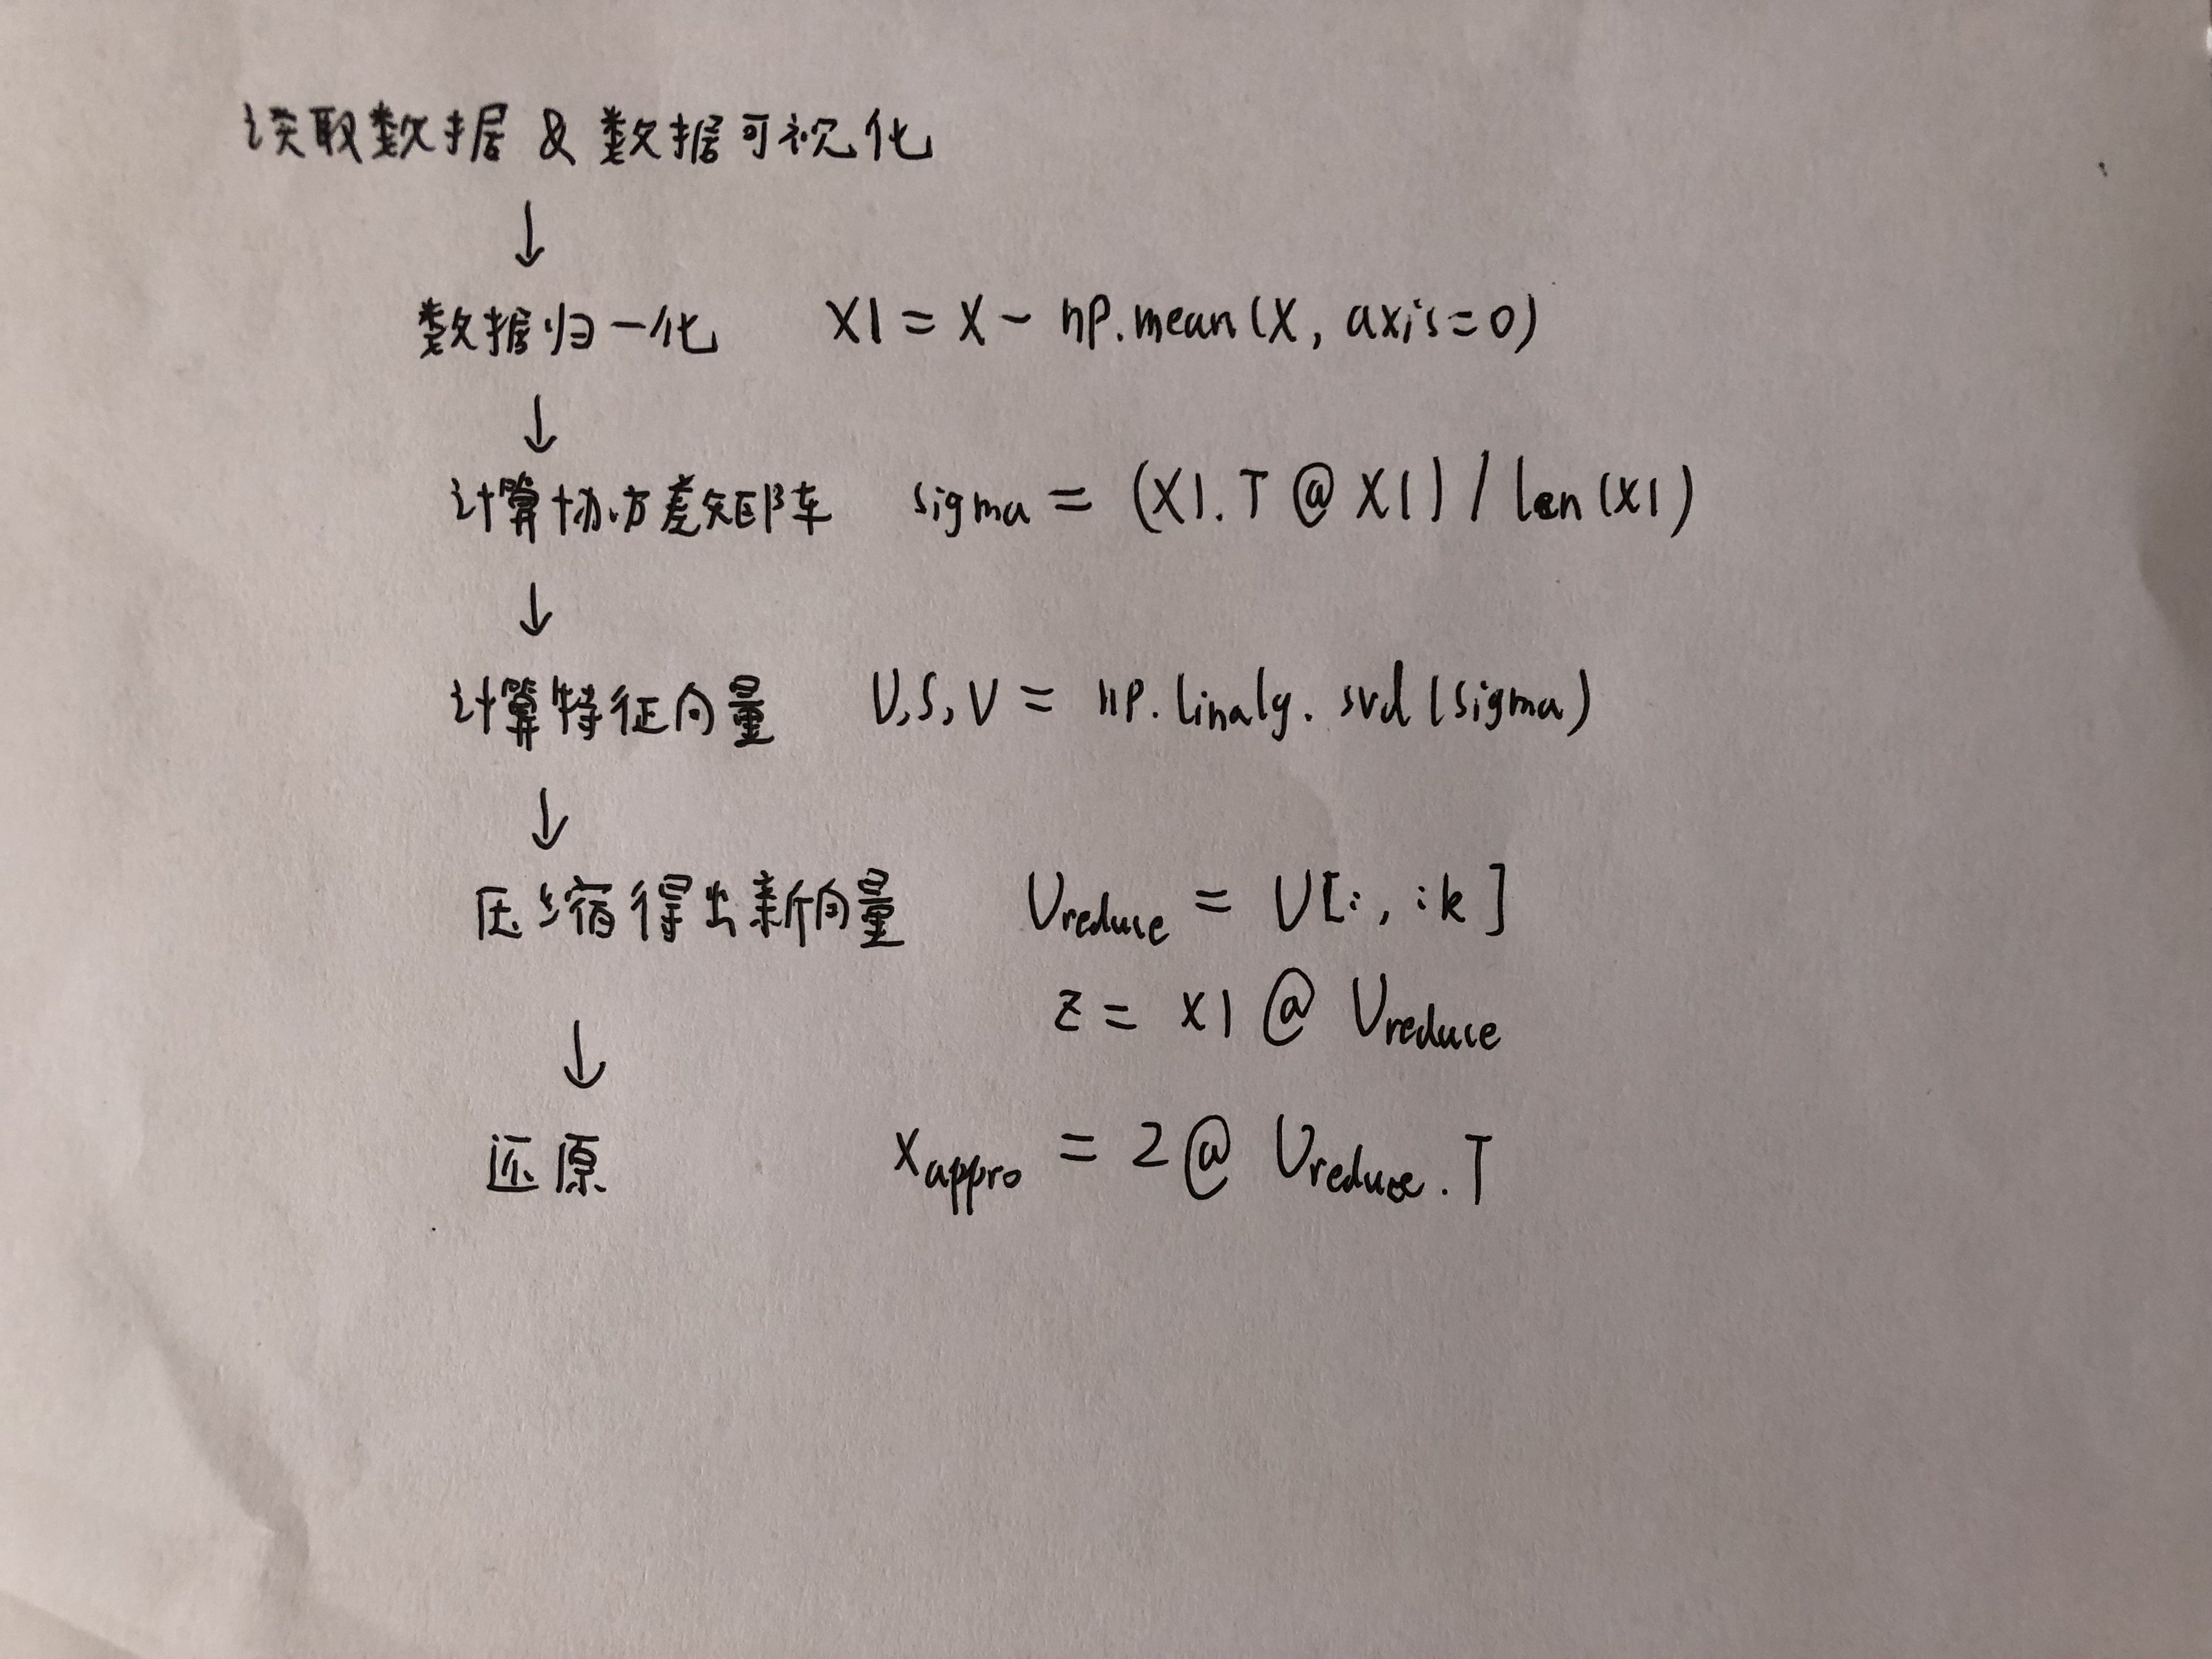 读取数据 & 数据可视化
↓
数据归一化 X1 = X - np.mean(X, axis=0)
↓
计算协方差矩阵 sigma = (X1.T @ X1) / len(X1)
↓
计算特征向量 U,S,V = np.linalg.svd(sigma)
↓
压缩得出新向量 Ureduce = U[:, :k]
z = X1 @ Ureduce
↓
还原 Xappro = z @ Ureduce.T